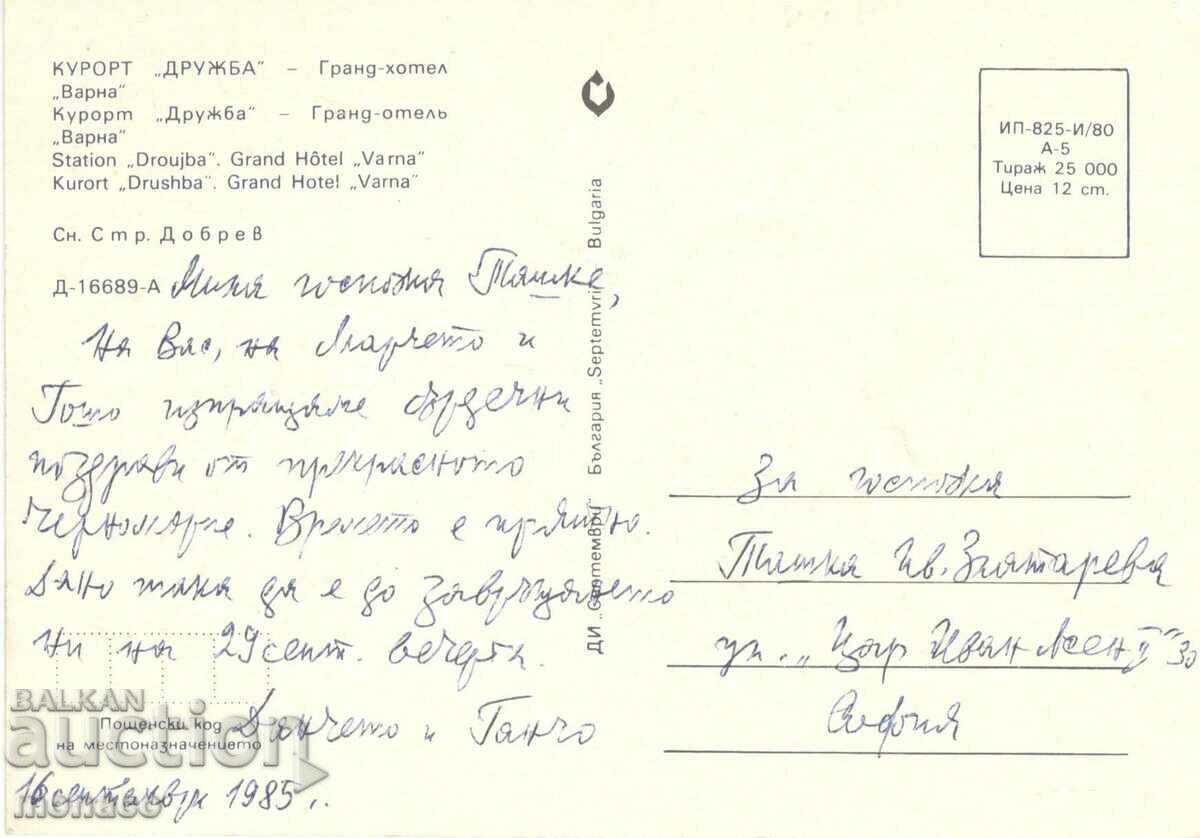 КУРОРТ „ДРУЖБА" – Гранд-хотел
„Варна"
Курорт „Дружба" – Гранд-отель
„Варна"
Station „Droujba". Grand Hôtel „Varna"
Kurort „Drushba". Grand Hotel „Varna"
Сн. Стр. Добрев
Д-16689-А
Мила госпожа Ташке,
На Вас, на Марчето и
Гошо изпращаме сърдечни
поздрави от прекрасното
Черноморие. Времето е приятно.
Дано така да е до завръщането
ни на 29 септ. вечерта.
Данчето и Ганчо
16 септември 1985 г.
Пощенски код
на местоназначението
ДИ „Септември" България „Septemvri" Bulgaria
ИП-825-И/80
А-5
Тираж 25 000
Цена 12 ст.
За госпожа
Ташка Ив. Златарева
ул. „Цар Иван Асен II" 30
София
BALKAN
auction
monaco